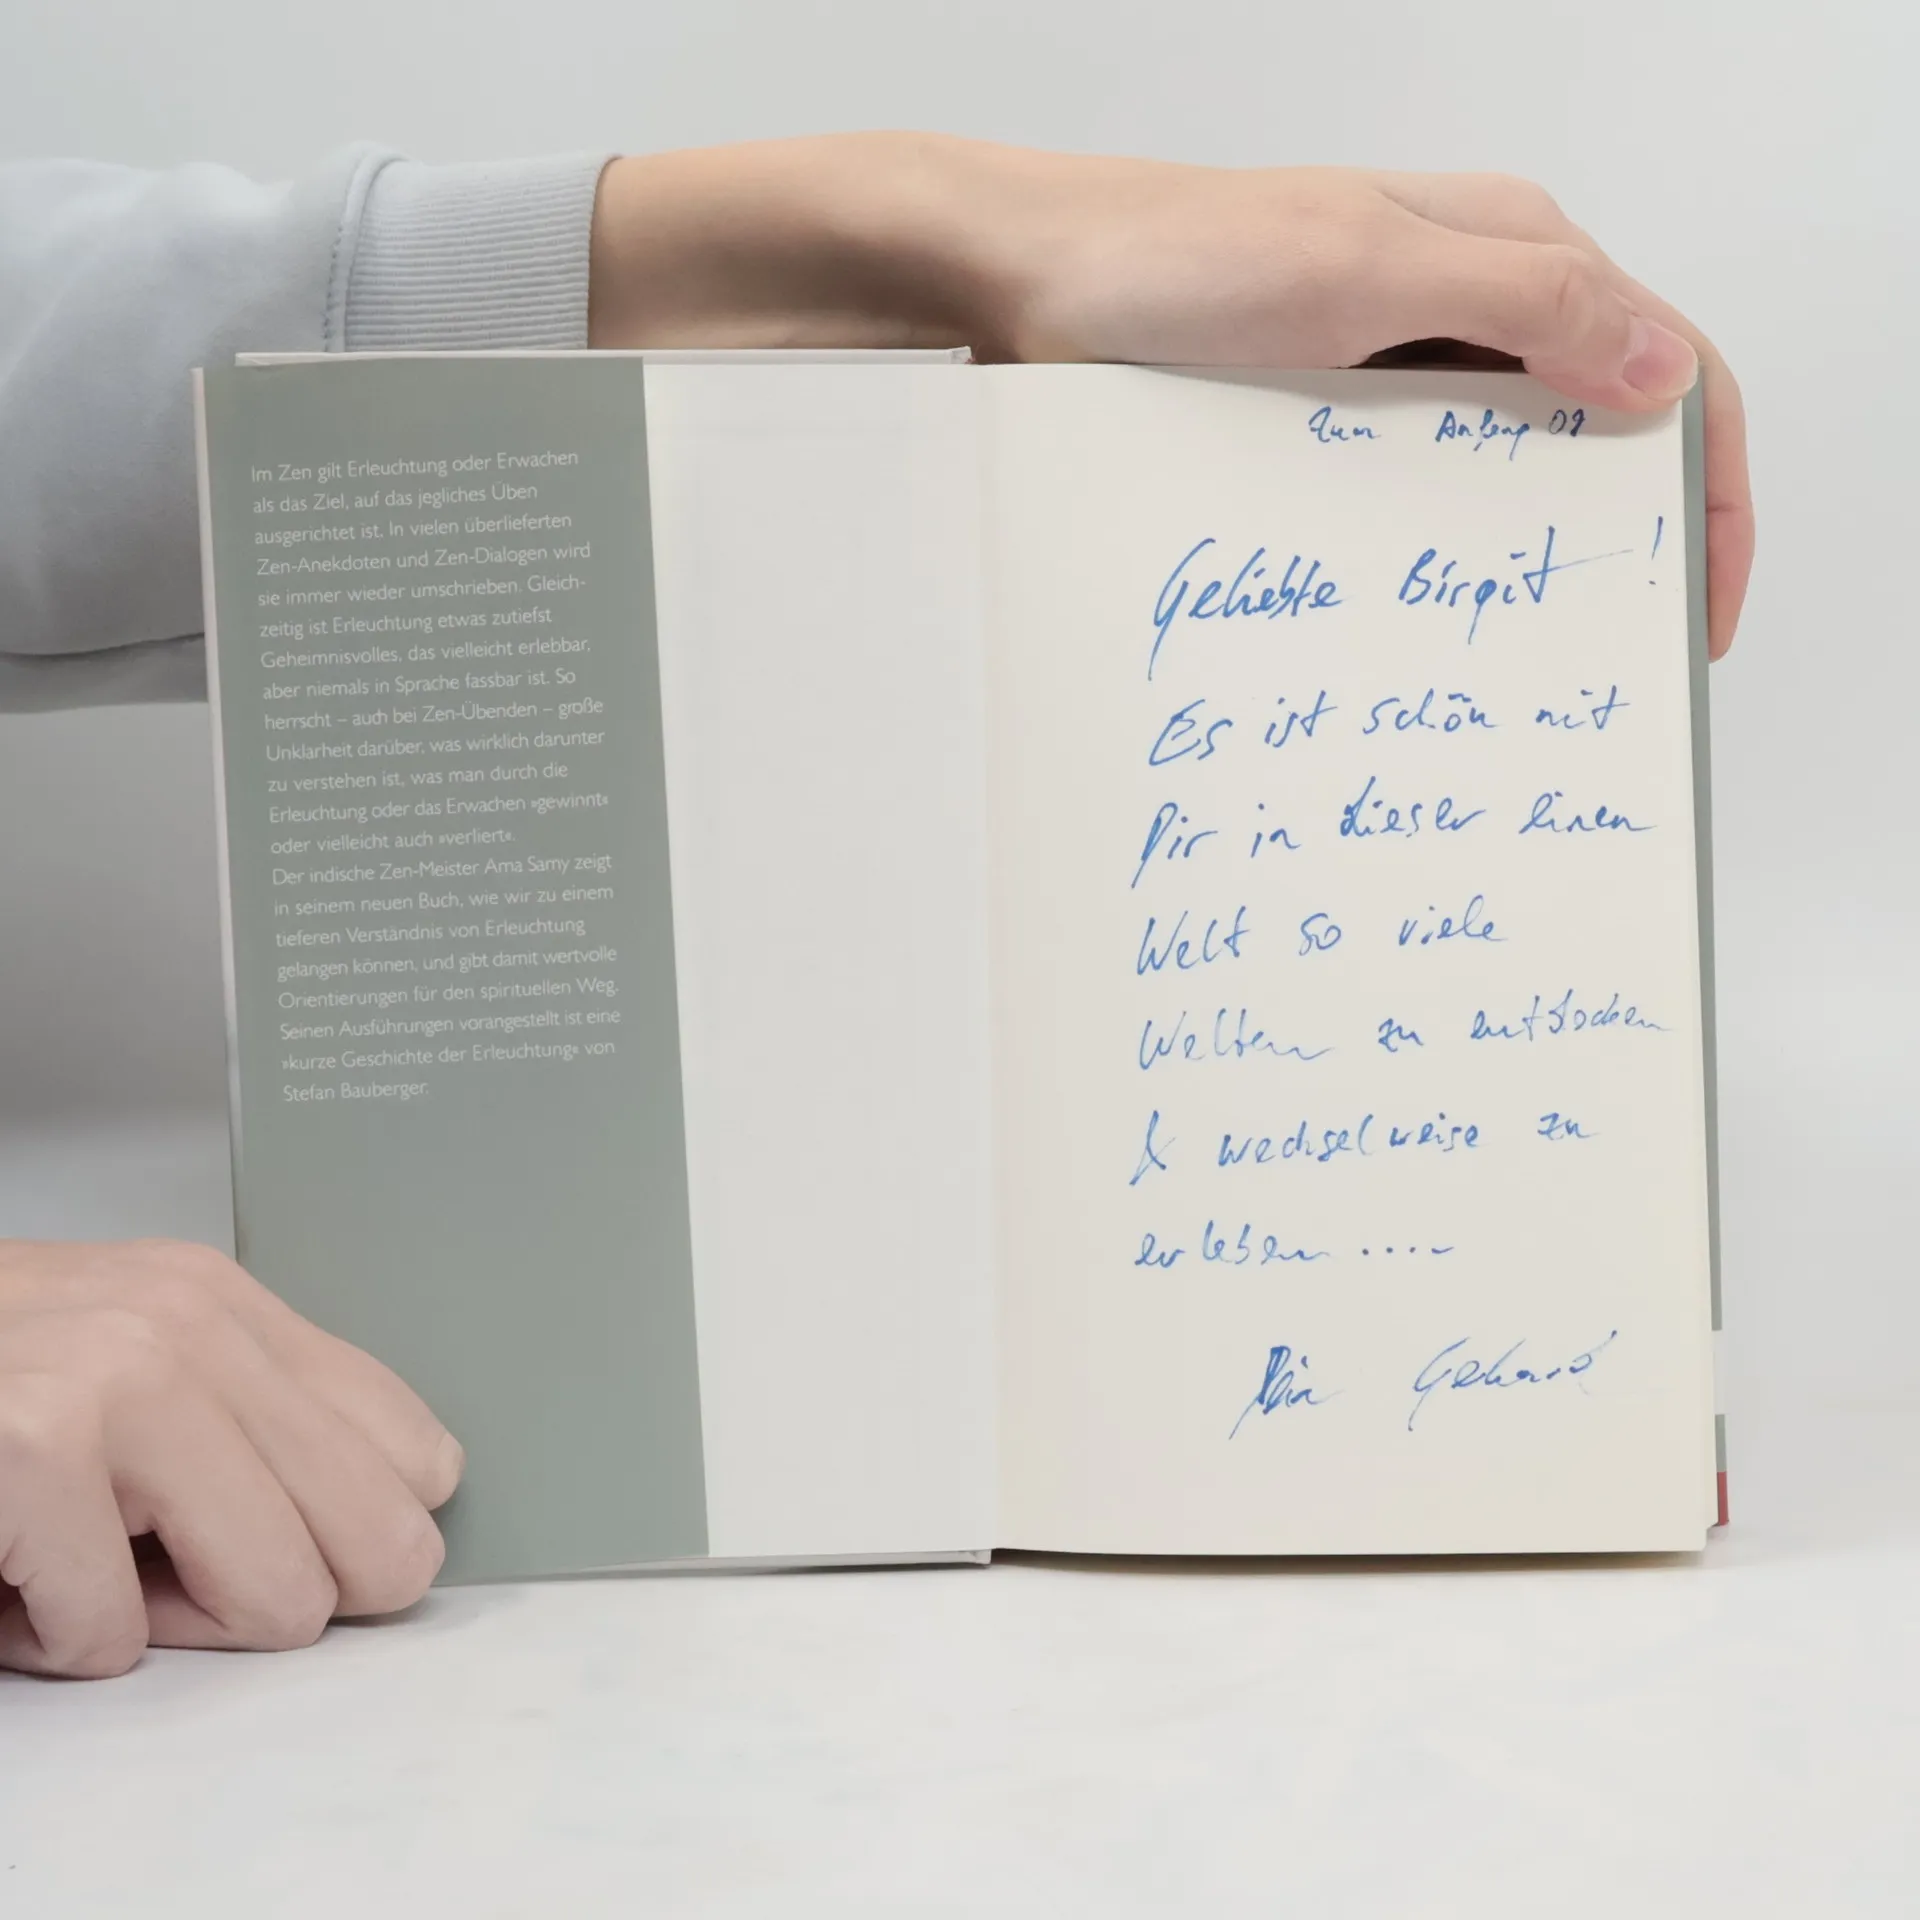 Im Zen gilt Erleuchtung oder Erwachen
als das Ziel, auf das jegliches Üben
ausgerichtet ist. In vielen überlieferten
Zen-Anekdoten und Zen-Dialogen wird
sie immer wieder umschrieben. Gleich-
zeitig ist Erleuchtung etwas zutiefst
Geheimnisvolles, das vielleicht erlebbar,
aber niemals in Sprache fassbar ist. So
herrscht – auch bei Zen-Übenden – große
Unklarheit darüber, was wirklich darunter
zu verstehen ist, was man durch die
Erleuchtung oder das Erwachen »gewinnt«
oder vielleicht auch »verliert«.
Der indische Zen-Meister Ama Samy zeigt
in seinem neuen Buch, wie wir zu einem
tieferen Verständnis von Erleuchtung
gelangen können, und gibt damit wertvolle
Orientierungen für den spirituellen Weg.
Seinen Ausführungen vorangestellt ist eine
»kurze Geschichte der Erleuchtung« von
Stefan Bauberger.
Zum Anfang
Geliebte Birgit !
Es ist schön mit
Dir in dieser einen
Welt so viele
Welten zu entdecken
& wechselweise zu
erleben ....
Dein